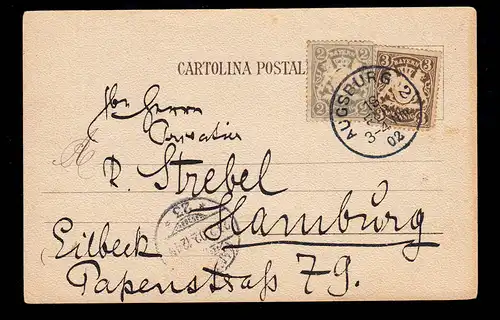 CARTOLINA POSTAL
2 BAYERN 2
3 BAYERN 3
AUGSBURG 2
3-4
02
Herrn
R. Strebel
Hamburg
Eilbeck
Papenstraß 79.
23